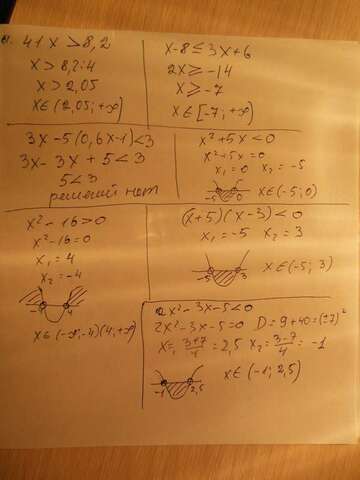 4x > 8,2
x > 8,2:4
x > 2,05
x ∈ (2,05; +∞)
x - 8 ≤ 3x + 6
2x ≥ -14
x ≥ -7
x ∈ [-7; +∞)
3x - 5(0,6x-1) < 3
3x - 3x + 5 < 3
5 < 3
решений нет
x² + 5x < 0
x² + 5x = 0
x₁ = 0 x₂ = -5
-5 0 x ∈ (-5; 0)
x² - 16 > 0
x² - 16 = 0
x₁ = 4
x₂ = -4
-4 4
x ∈ (-∞; -4)(4; +∞)
(x+5)(x-3) < 0
x₁ = -5 x₂ = 3
-5 3 x ∈ (-5; 3)
2x² - 3x - 5 < 0
2x² - 3x - 5 = 0 D = 9 + 40 = (±7)²
x₁ = 3+7/4 = 2,5 x₂ = 3-7/4 = -1
-1 2,5 x ∈ (-1; 2,5)